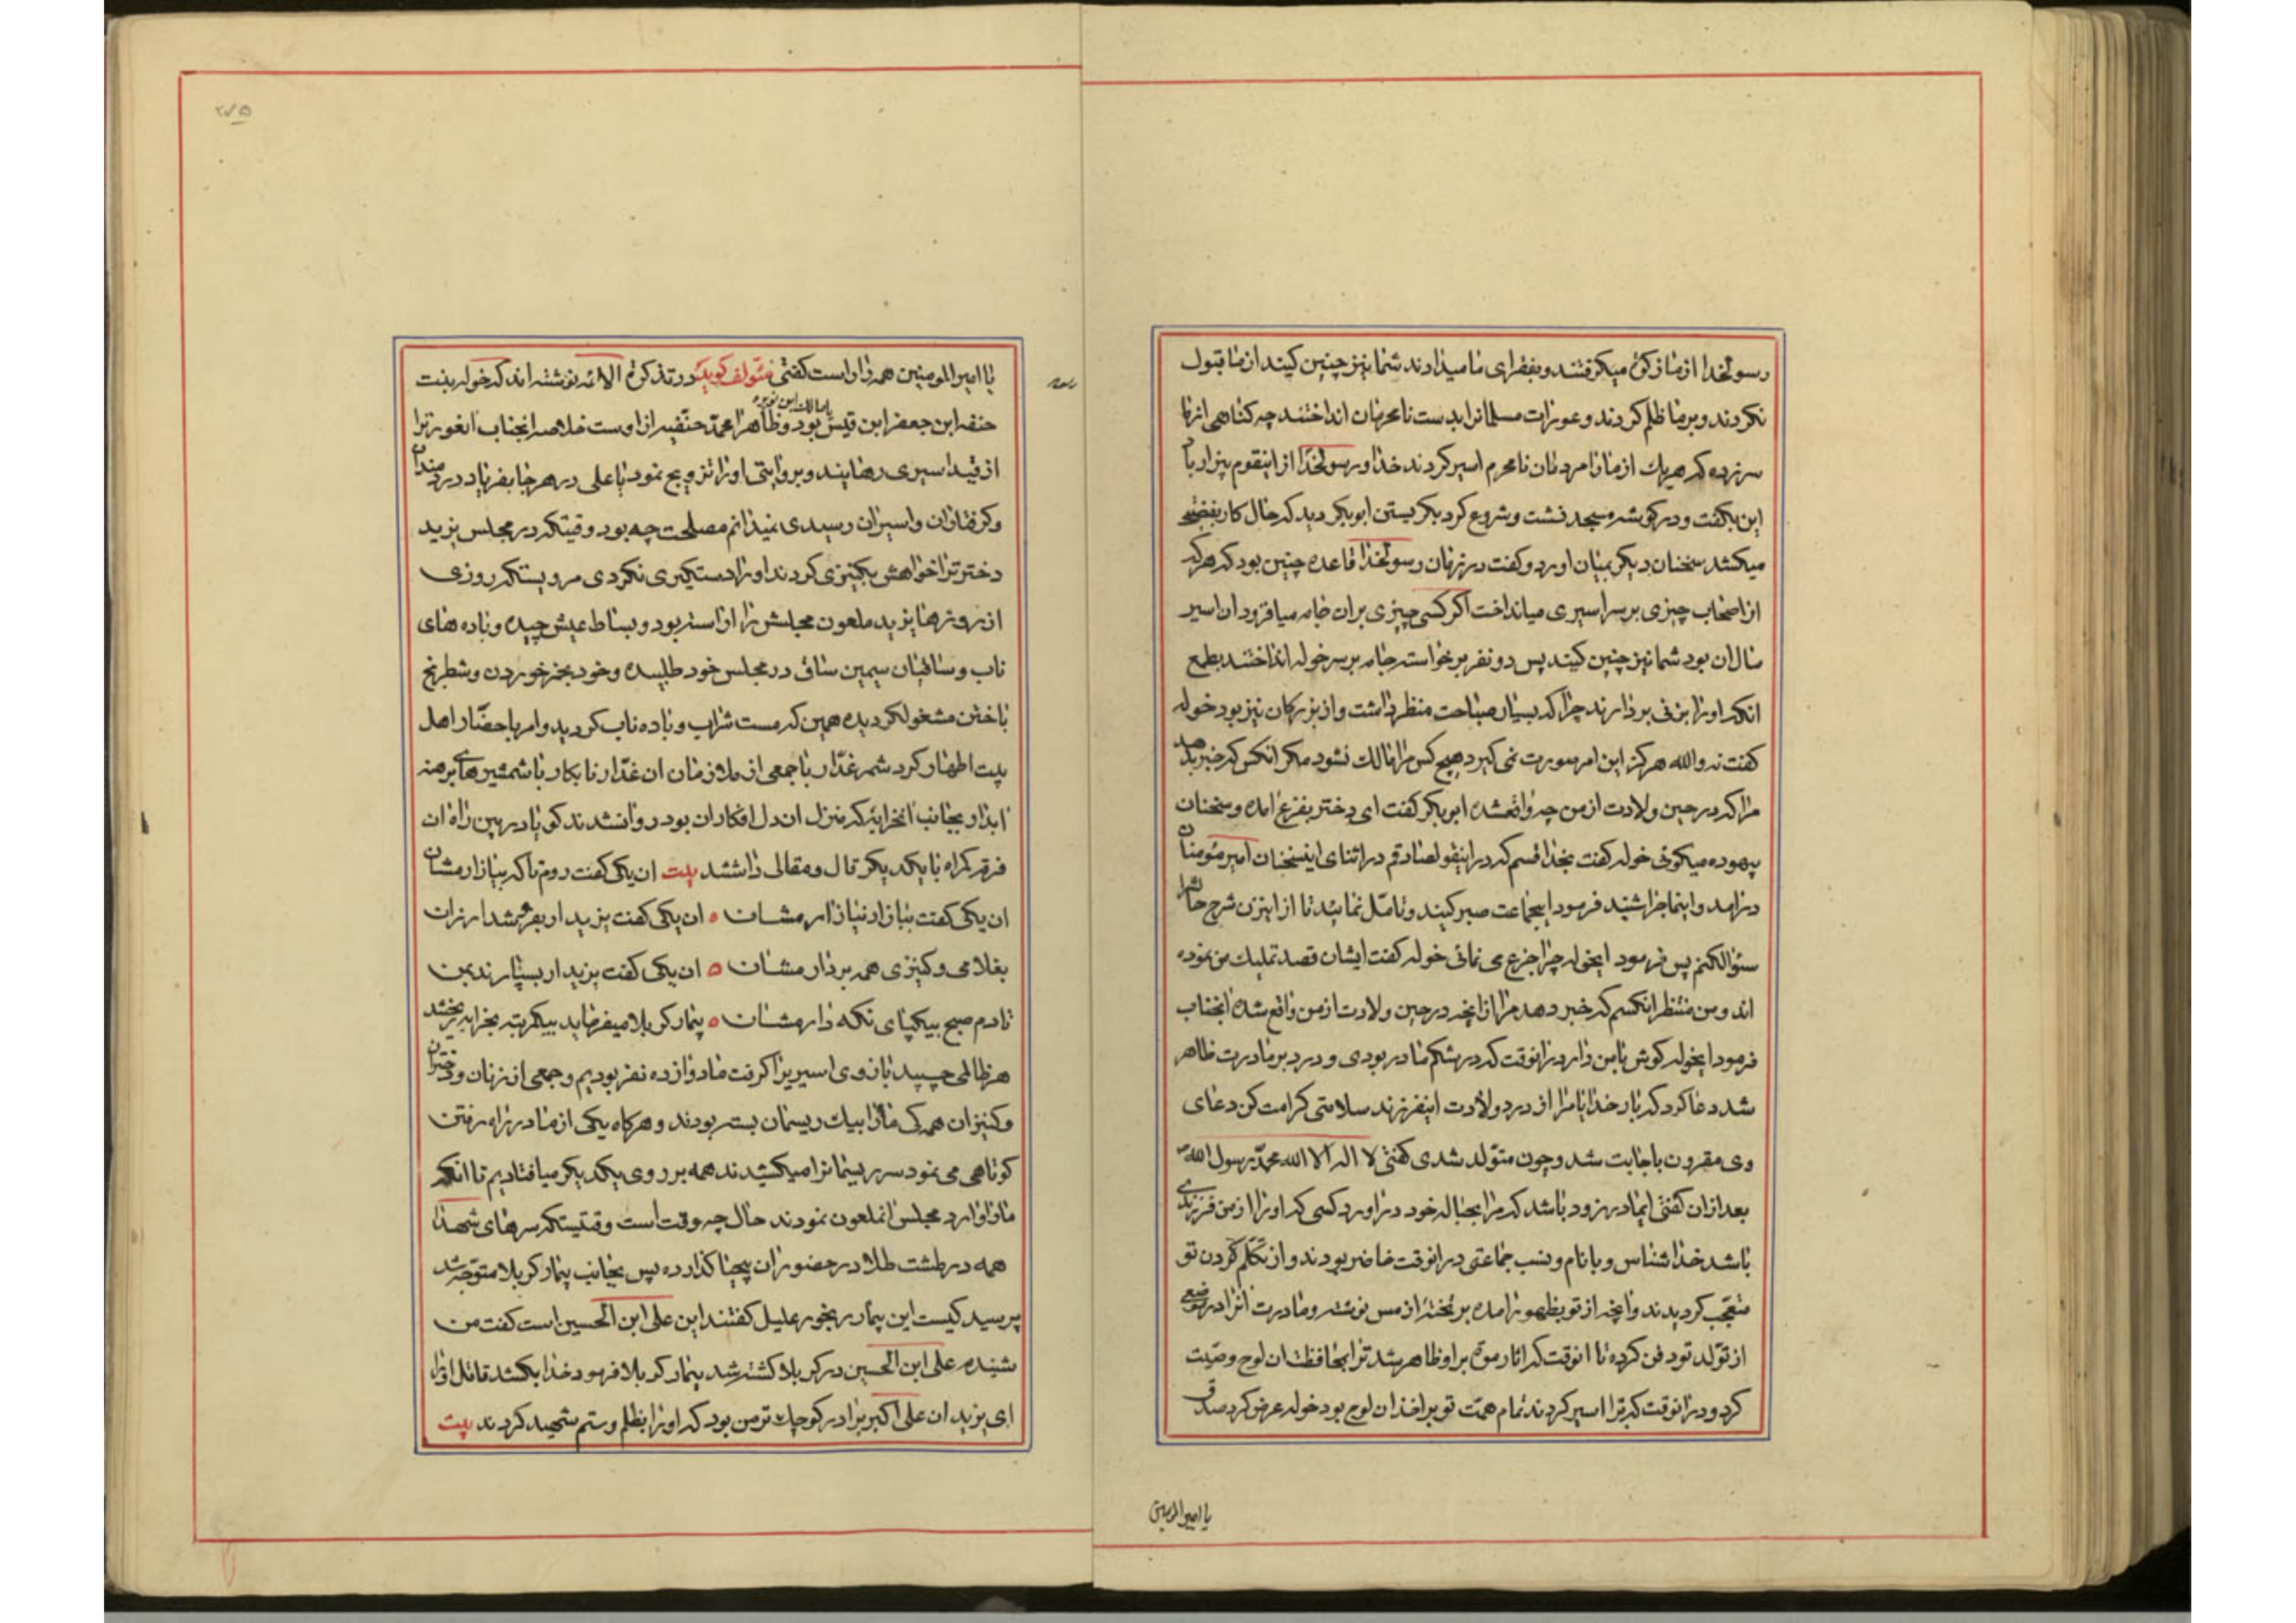 رسولخدا از ما زکوة میکرفتند و بفقرای ما میدادند شما نیز چنین کنید از ما قبول
نکردند و بر ما ظلم کردند و عورات مسلمانرا بدست نامحرمان انداختند چه کناهی از ما
سرزده که هریک از ما را مردمان نامحرم اسیر کردند خدا و رسولخدا از اینقوم بیزار باد
این بکفت و در کوشه مسجد نشست و شروع کرد بکریستن ابوبکر دید که حال کار بفضیحه
میکشد سخنان دیکر بمیان اورد و کفت در زمان رسولخدا قاعده چنین بود که هرکه
از اصحاب چیزی بر سر اسیری میانداخت اکر کسی چیزی بران جامه میافزود ان اسیر
مال ان بود شما نیز چنین کنید پس دو نفر برخواسته جامه بر سر خوله انداختند بطمع
انکه او را بزنی بردارند چرا که بسیار صباحت منظر داشت و از بزرکان نیز بود خوله
کفت نه والله هرکز این امر صورت نمی کیرد هیچ کس مرا مالک نشود مکر انکس که خبر بدهد
مرا که در حین ولادت از من چه واقعشده ابوبکر کفت ای دختر بفزع امده و سخنان
بیهوده میکوئی خوله کفت بخدا قسم که در اینقول صادقم در اثنای اینسخنان امیر مؤمنان
درامد و اینماجرا شنید فرمود ایجماعت صبر کنید و تامل نمائید تا از اینزن شرح حالش را
سئوالکنم پس فرمود ایخوله چرا جزع می نمائی خوله کفت ایشان قصد تملیک من نموده
اند و من منتظر انکسم که خبر دهد مرا از انچه در حین ولادت از من واقع شده انجناب
فرمود ایخوله کوش بامن دار درانوقت که در شکم مادر بودی و درد بر مادرت ظاهر
شد دعا کرد که بار خدایا مرا از درد ولادت اینفرزند سلامتی کرامت کن دعای
وی مقرون باجابت شد و چون متولد شدی کفتی لا اله الا الله محمد رسول الله
بعد ازان کفتی ایمادر زود باشد که مرا بحباله خود دراورد کسی که او را از من فرزندی
باشد خداشناس و با نام و نسب جماعتی درانوقت حاضر بودند و از تکلم کردن تو
متعجب کردیدند و انچه از تو بظهور امده بر تخته از مس نوشته و مادرت انرا در موضع
از تولد تو دفن کرده تا انوقت که اثار موت بر او ظاهر شد ترا بمحافظت ان لوح وصیت
کرد و درانوقت که ترا اسیر کردند تمام همت تو بر اخذ ان لوح بود خوله عرض کرد صدق
یا امیرالمومنین
۲۷۵
یا امیرالمومنین همه را راست کفتی مئولف کوید در تذکرة الائمه نوشته اند که خوله بنت
حنفه ابن جعفر ابن قیس بود و ظاهرا محمد حنفیه از اوست خلاصه انجناب انعورترا
از قید اسیری رهانید و بروایتی او را تزویج نمود یا علی در هر جا بفریاد دردمندان
و کرفتاران و اسیران رسیدی نمیدانم مصلحت چه بود وقتیکه در مجلس یزید
دختر ترا خواهش بکنیزی کردند او را دستکیری نکردی مرویستکه روزی
از روزها یزید ملعون مجلسش را اراسته بود و بساط عیش چیده و باده های
ناب و ساقیان سیمین ساق در مجلس خود طلبیده و خود بخمر خوردن و شطرنج
باختن مشغولکردیده همین که مست شراب و باده ناب کردید و امر باحضار اهل
بیت اطهار کرد شمر غدار با جمعی از ملازمان ان غدار نابکار با شمشیرهای برهنه
ابدار بجانب انخرابه که منزل ان دل افکاران بود روانشدند کویا در بین راه ان
فرقه کمراه با یکدیکر قال و مقالی داشتند بیت ان یکی کفت روم تا که بیازارمشان
ان یکی کفت بیازار نیازارمشان ۰ ان یکی کفت یزید ار بفروشد ارزان
بغلامی و کنیزی همه بردارمشان ۰ ان یکی کفت یزید ار بسپارند بمن
تا دم صبح بیکپای نکه دارمشان ۰ بیمار کربلا میفرماید بیکمرتبه بخرابه ریختند
هر ظالمی چسبید بازوی اسیریرا کرفت ما دوازده نفر بودیم و جمعی از زنان و دختران
و کنیزان همه کی مارا بیک ریسمان بسته بودند و هرکاه یکی از ما در راه رفتن
کوتاهی می نمود سر ریسمانرا میکشیدند همه بر روی یکدیکر میافتادیم تا انکه
مارا وارد مجلس انملعون نمودند حال چه وقت است وقتیستکه سرهای شهدا
همه در طشت طلا در حضور ان بیحیا کذارده پس بجانب بیمار کربلا متوجه شد
پرسید کیست این بیمار رنجور علیل کفتند این علی ابن الحسین است کفت من
شنیدم علی ابن الحسین در کربلا کشته شد بیمار کربلا فرمود خدا بکشد قاتل او را
ای یزید ان علی اکبر برادر کوچک تر من بود که او را بظلم و ستم شهید کردند بیت